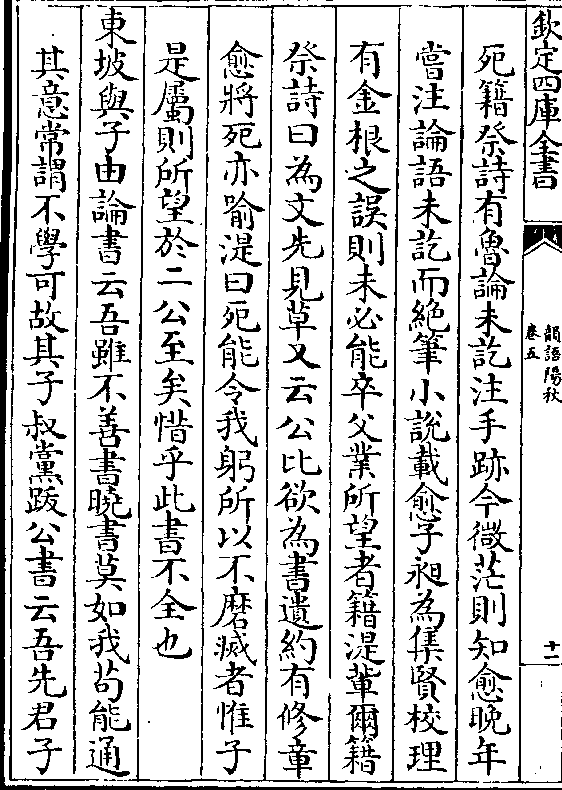 欽定四庫全書
韻語陽秋
卷五
十一
死籍祭詩有魯論未訖注手跡今微茫則知愈晚年
嘗注論語未訖而絶筆小說載愈子昶為集賢校理
有金根之誤則未必能卒父業所望者籍湜輩爾籍
祭詩曰為文先見草又云公比欲為書遺約有修章
愈將死亦喻湜曰死能令我躬所以不磨滅者惟子
是屬則所望於二公至矣惜乎此書不全也
東坡與子由論書云吾雖不善書曉書莫如我苟能通
其意常謂不學可故其子叔黨跋公書云吾先君子